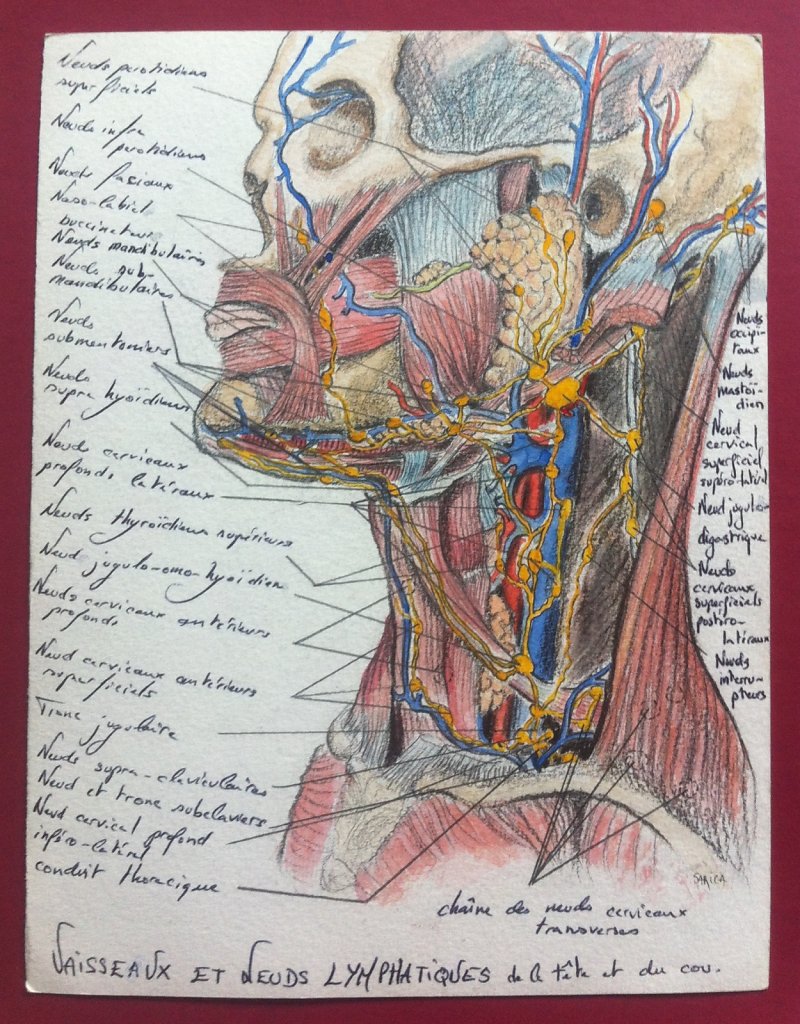 Neuds parotidiens
superficiels
Neuds infra
parotidiens
Neuds faciaux
Naso-labial
buccinateur
Neuds mandibulaires
Neuds sub-
mandibulaires
Neuds
submentoniers
Neuds
supra hyoïdiens
Neuds cervicaux
profonds latéraux
Neuds thyroïdiens supérieurs
Neud jugulo-omo-hyoïdien
Neuds cervicaux antérieurs
profonds
Neud cervicaux antérieurs
superficiels
Tronc jugulaire
Neuds supra-claviculaires
Neud et tronc subclaviers
Neud cervical profond
inféro-latéral
conduit thoracique
Neuds
occipi-
taux
Neuds
mastoï-
dien
Neud
cervical
superficiel
supéro-latéral
Neud jugulo-
digastrique
Neuds
cervicaux
superficiels
postéro-
latéraux
Neuds
interru-
pteurs
SARICA
chaîne des neuds cervicaux
transverses
VAISSEAUX ET NEUDS LYMPHATIQUES de la tête et du cou.